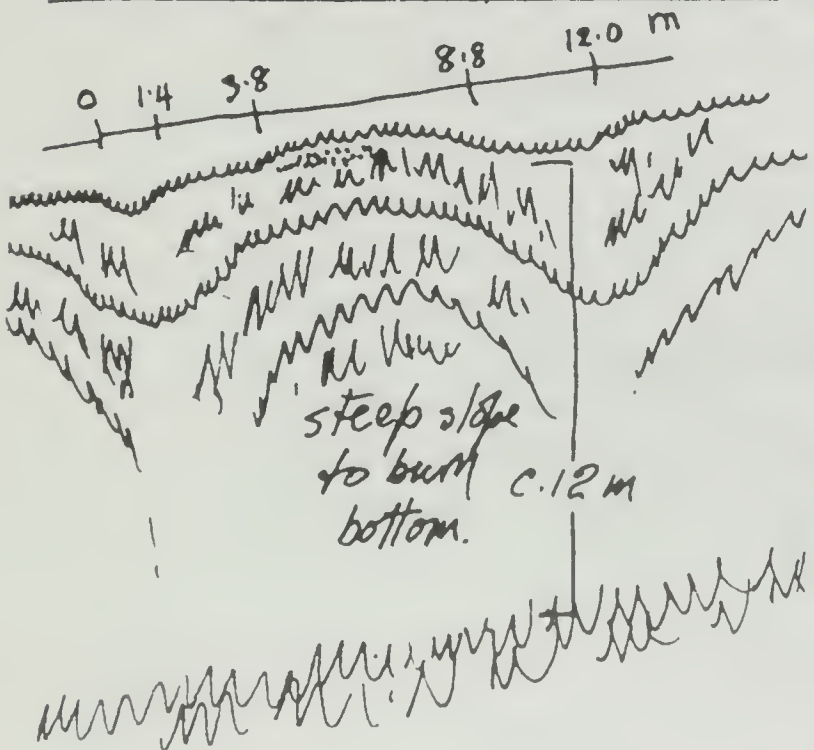 0 1·4 3·8 8·8 12·0 m
steep slope
to burn
bottom.
c.12 m